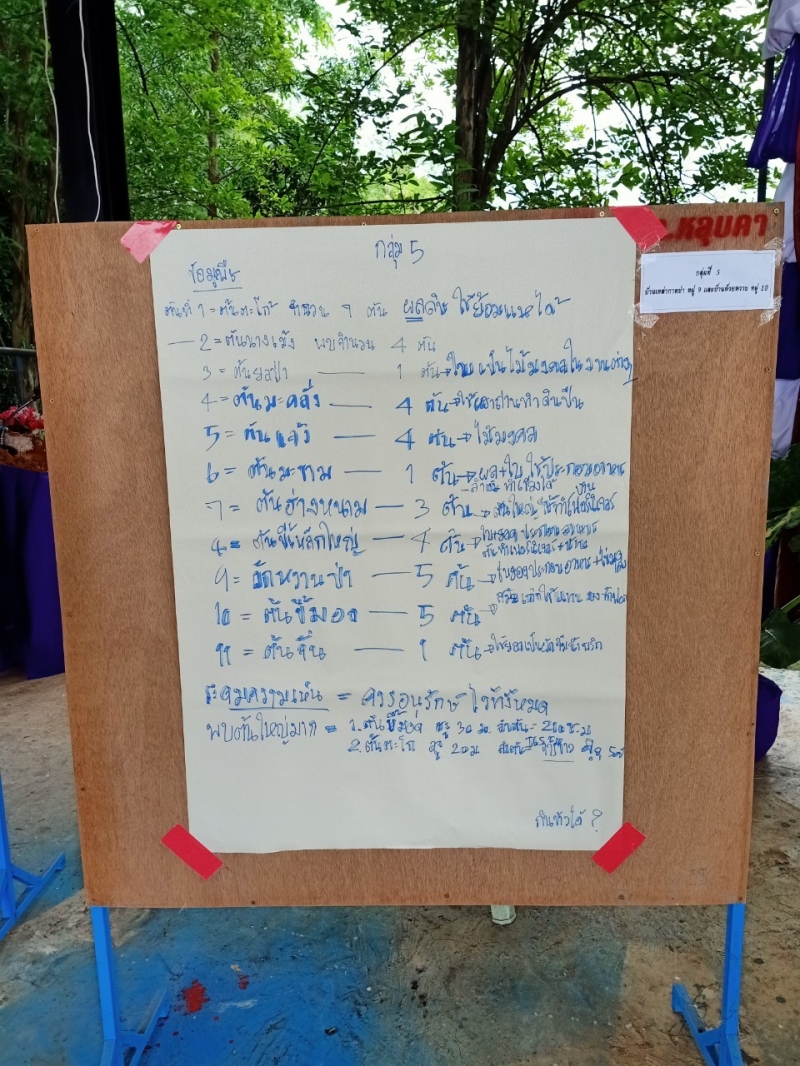 อ.หลุบคา
กลุ่มที่ 5
บ้านเหล่ากาดย่า หมู่ 9 และบ้านห้วยหวาย หมู่ 10
กลุ่ม 5
ข้อมูลพืช
ต้นที่ 1 = ต้นตะโก้ จำนวน 1 ต้น ผลดิบ ใช้ย้อมแหได้
2 = ต้นนางเม้ง พบจำนวน 4 ต้น
3 = ต้นยอป่า — 1 ต้น → ใบ เป็นไม้มงคลในงานต่างๆ
4 = ต้นมะคลั่ง — 4 ต้น → ใช้เผาถ่านทำดินปืน
5 = ต้นแจ้ง — 4 ต้น → ไม้มงคล
6 = ต้นมะขาม — 1 ต้น → ผล+ใบ ใช้ประกอบอาหาร
ลำต้น ทำเขียงได้
7 = ต้นฮ่างหนาม — 3 ต้น → ต้นใหญ่ ใช้ทำเฟอร์นิเจอร์
บ้าน
8 = ต้นขี้เหล็กใหญ่ — 4 ต้น → ใบ+ยอด ประกอบอาหาร
ต้นทำเฟอร์นิเจอร์+บ้าน
9 = ผักหวานป่า — 5 ต้น → ใบยอดประกอบอาหาร
10 = ต้นขี้มอด — 5 ต้น →
11 = ต้นจิ้น — 1 ต้น →
ระดมความเห็น = ควรอนุรักษ์ไว้ทั้งหมด
พบต้นใหญ่มาก = 1. ต้นขี้มอด สูง 30 ม. ลำต้น = 200 ซ.ม
2. ต้นตะโก สูง 20 ม ลำต้น
กินหัวได้ ?